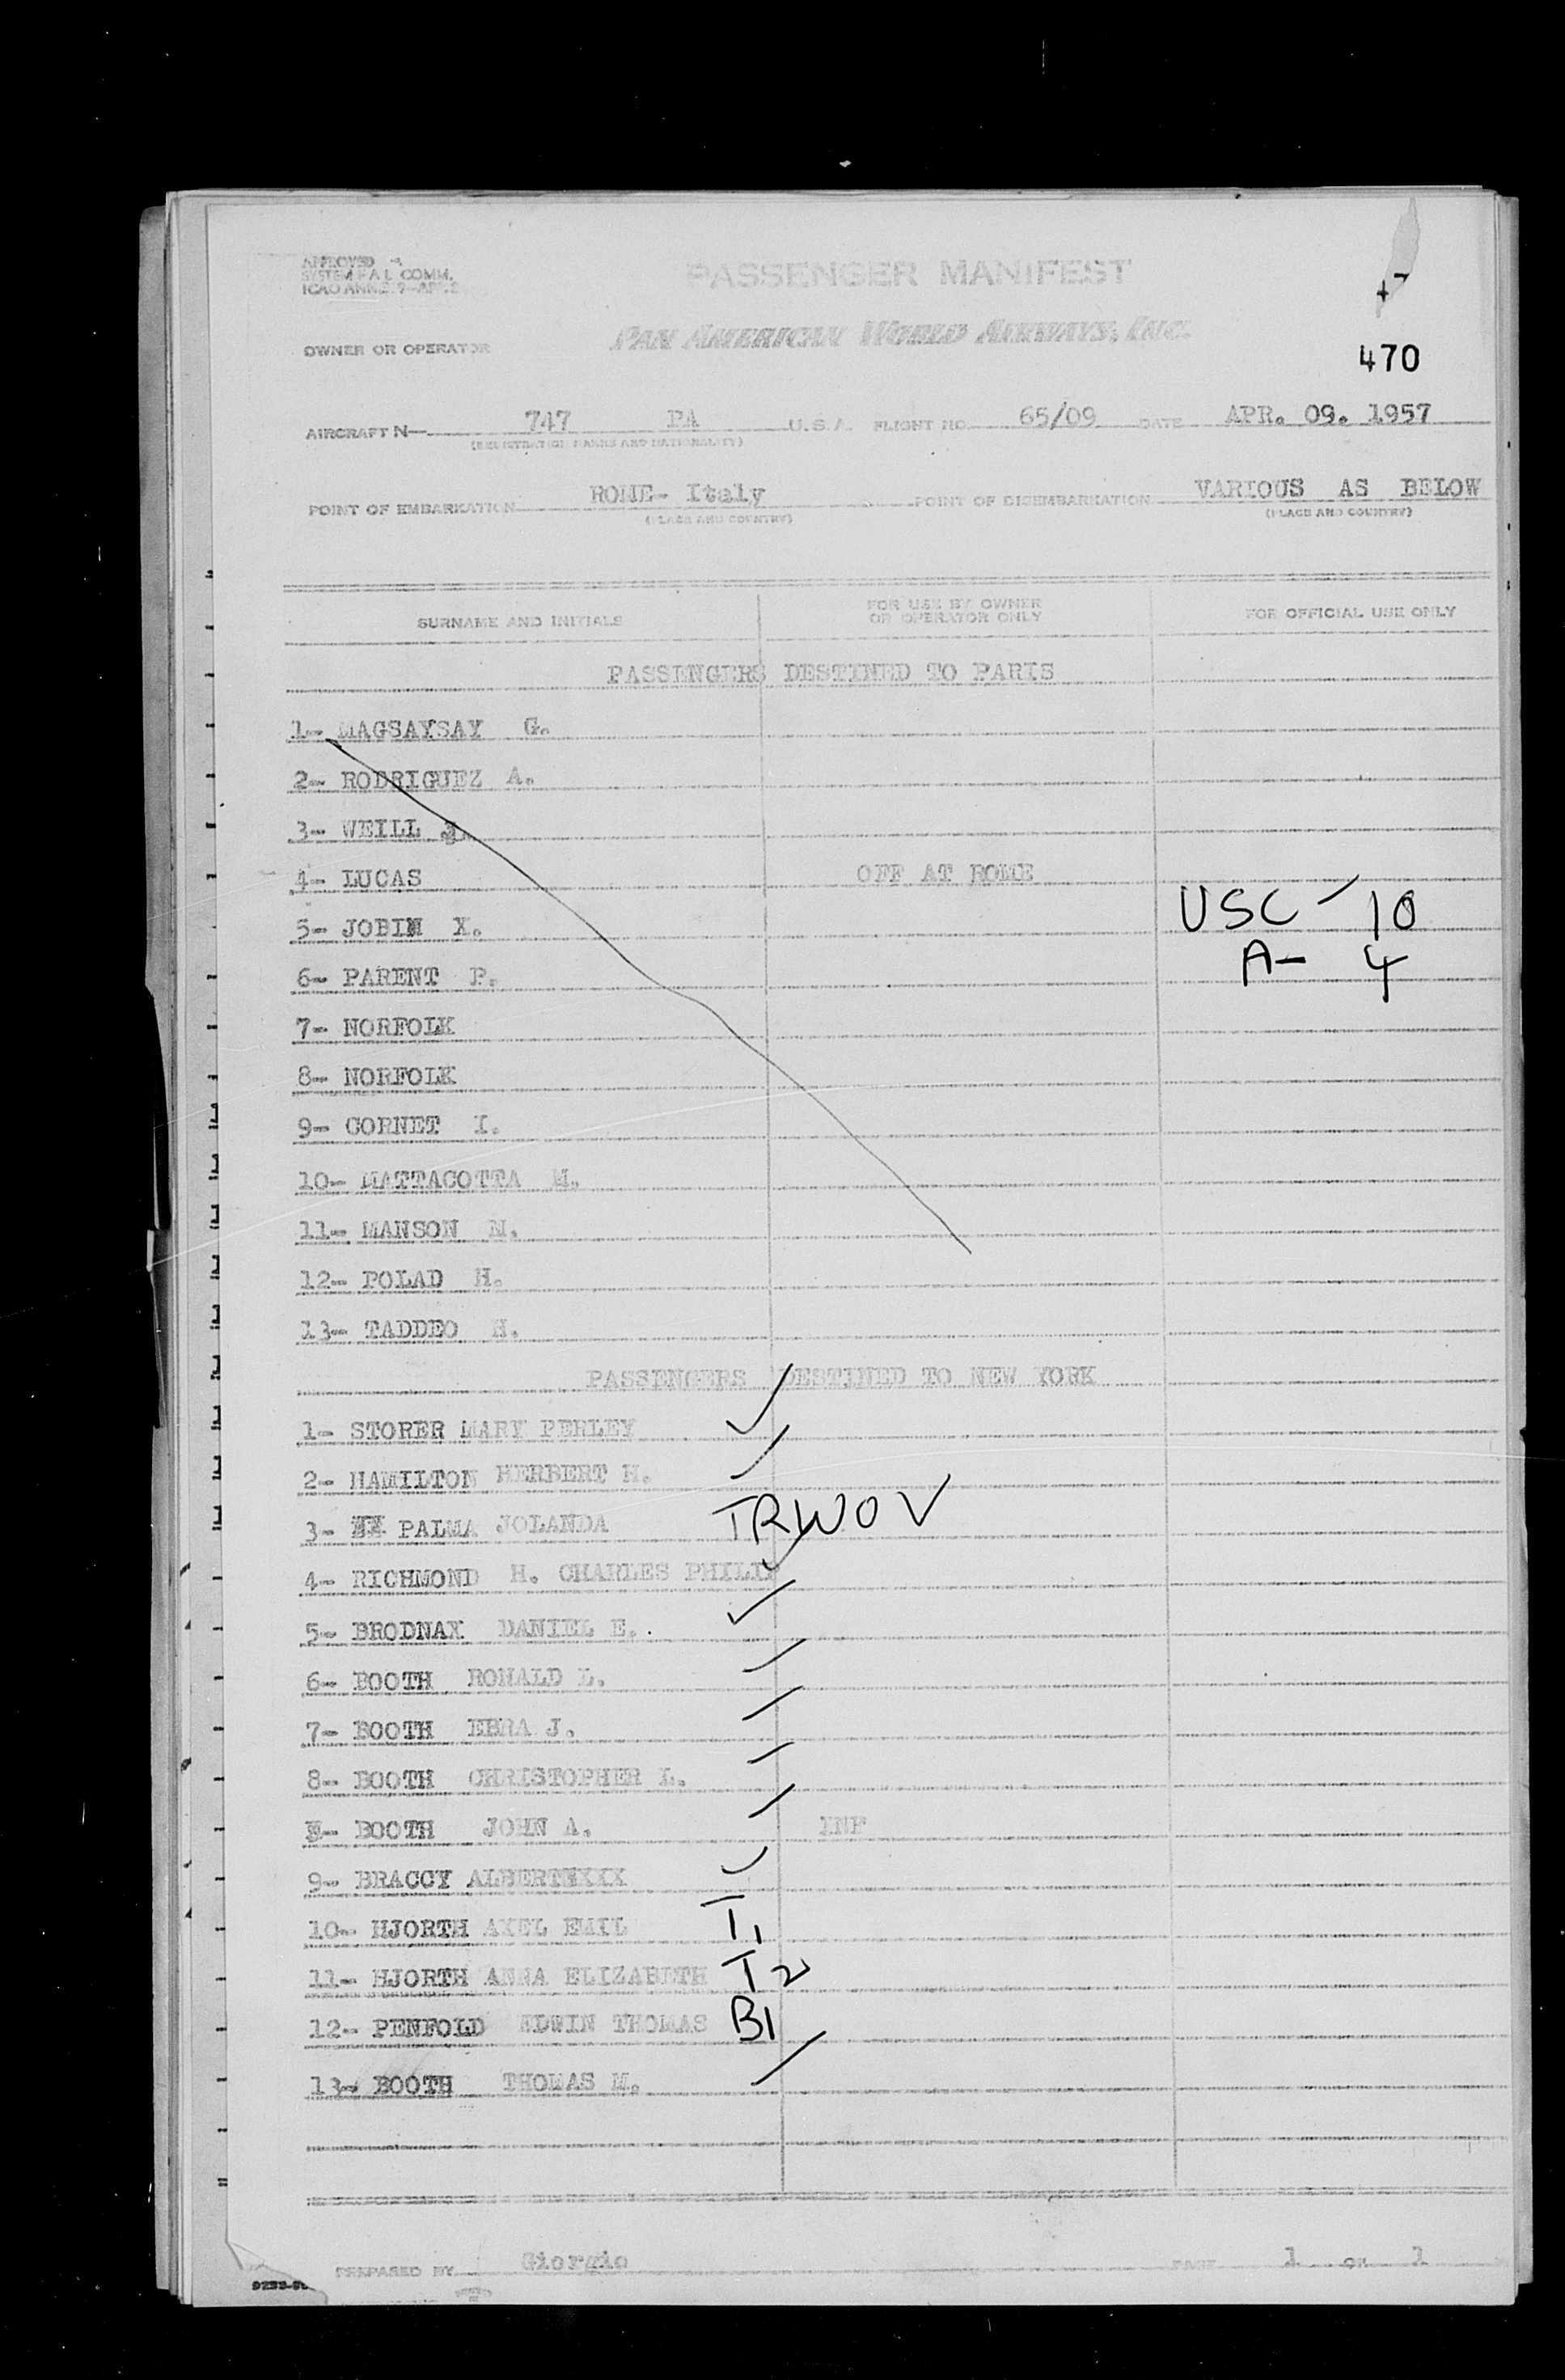 APPROVED
SYSTEM F A L COMM.
ICAO ANNEX 9-APP.2
PASSENGER MANIFEST
47
OWNER OR OPERATOR PAN AMERICAN WORLD AIRWAYS, INC.
470
AIRCRAFT N— 747 PA U.S.A. FLIGHT NO. 65/09 DATE APR. 09. 1957
(REGISTRATION MARKS AND NATIONALITY)
POINT OF EMBARKATION ROME- Italy POINT OF DISEMBARKATION VARIOUS AS BELOW
(PLACE AND COUNTRY) (PLACE AND COUNTRY)
SURNAME AND INITIALS FOR USE BY OWNER OR OPERATOR ONLY FOR OFFICIAL USE ONLY
PASSENGERS DESTINED TO PARIS
1- MAGSAYSAY G.
2- RODRIGUEZ A.
3- WEILL J.
4- LUCAS OFF AT ROME
USC - 10
5- JOBIN X.
A- 4
6- PARENT P.
7- NORFOLK
8- NORFOLK
9- CORNET I.
10- MATTACOTTA M.
11- MANSON M.
12- POLAD H.
13- TADDEO H.
PASSENGERS DESTINED TO NEW YORK
1- STORER MARY PERLEY ✓
2- HAMILTON HERBERT H. ✓
3- PALMA JOLANDA TRWOV ✓
4- RICHMOND H. CHARLES PHILIP ✓
5- BRODNAX DANIEL E. ✓
6- BOOTH RONALD L. ✓
7- BOOTH EBRA J. ✓
8- BOOTH CHRISTOPHER L. ✓
BOOTH JOHN A. ✓ INF
9- BRACCY ALBERTXXX ✓
10- HJORTH AXEL EMIL T1
11- HJORTH ANNA ELIZABETH T2
12- PENFOLD EDWIN THOMAS B1
13- BOOTH THOMAS M. ✓
PREPARED BY Giorgio PAGE 1 OF 1